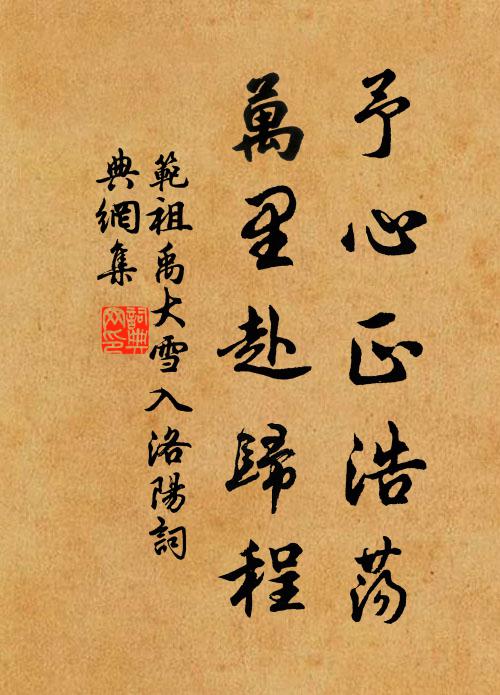 予心正浩蕩
萬里赴歸程
範祖禹大雪入洛陽詞
典網集
詞典网印